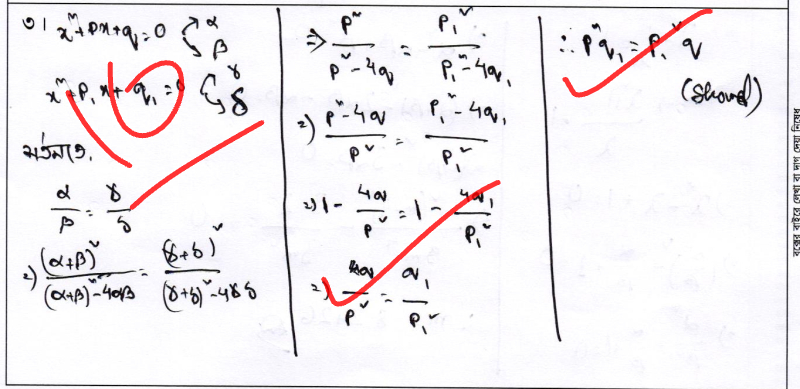 ৩। x² + px + q = 0 < α β
x² + p₁x + q₁ = 0 < γ δ
শর্তমতে,
α/β = γ/δ
⇒) (α+β)²/((α+β)² - 4αβ) = (γ+δ)²/((γ+δ)² - 4γδ)
⇒ p²/(p² - 4q) = p₁²/(p₁² - 4q₁)
⇒) (p² - 4q)/p² = (p₁² - 4q₁)/p₁²
⇒) 1 - 4q/p² = 1 - 4q₁/p₁²
⇒) q/p² = q₁/p₁²
∴ p²q₁ = p₁²q
(Showed)
বক্সের বাইরে লেখা বা দাগ দেয়া নিষেধ